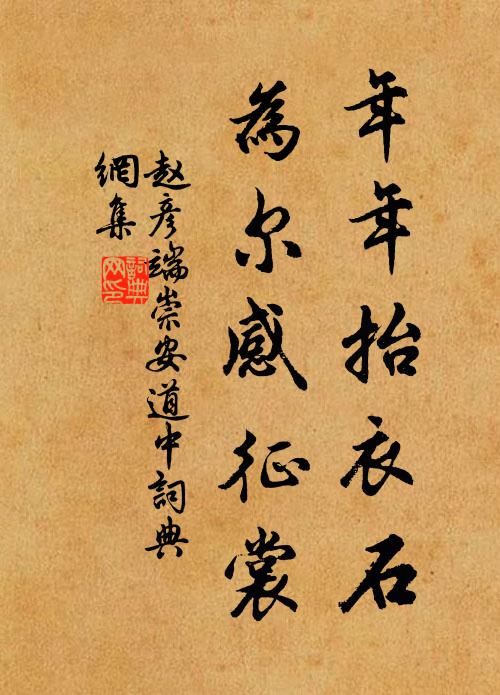 年年抬衣石
為尔感征裳
赵彦端崇安道中詞典
網集
詞典
网印